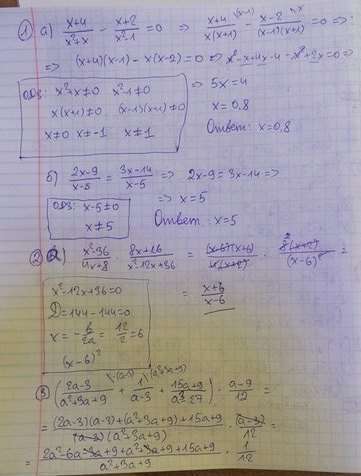 ① а) (x+4)/(x²+x) - (x+2)/(x²-1) = 0 ⇒ (x+4)/(x(x+1)) - (x-2)/((x-1)(x+1)) = 0 ⇒
⇒ (x+4)(x-1) - x(x-2) = 0 ⇒ x²-x+4x-4-x²+2x=0 ⇒
ОДЗ: x²+x≠0 x²-1≠0
x(x+1)≠0 (x-1)(x+1)≠0
x≠0 x≠-1 x≠1
⇒ 5x=4
x=0,8
Ответ: x=0,8
б) (2x-9)/(x-5) = (3x-14)/(x-5) ⇒ 2x-9=3x-14 ⇒
⇒ x=5
ОДЗ: x-5≠0
x≠5
Ответ: x=5
② (x²-36)/(4x+8) · (8x+16)/(x²-12x+36) = (x-6)(x+6)/(4(x+2)) · 8(x+2)/(x-6)² =
x²-12x+36=0
D=144-144=0
x=-b/2a=12/2=6
(x-6)²
= (x+6)/(x-6)
③ ((2a-3)/(a²+3a+9) + 1/(a-3) + (15a+9)/(a³-27)) · (a-9)/12 =
= ((2a-3)(a-3)+(a²+3a+9)+15a+9)/((a-3)(a²+3a+9)) · (a-3)/12 =
= (2a²-6a-3a+9+a²+3a+9+15a+9)/(a²+3a+9) · 1/12 =